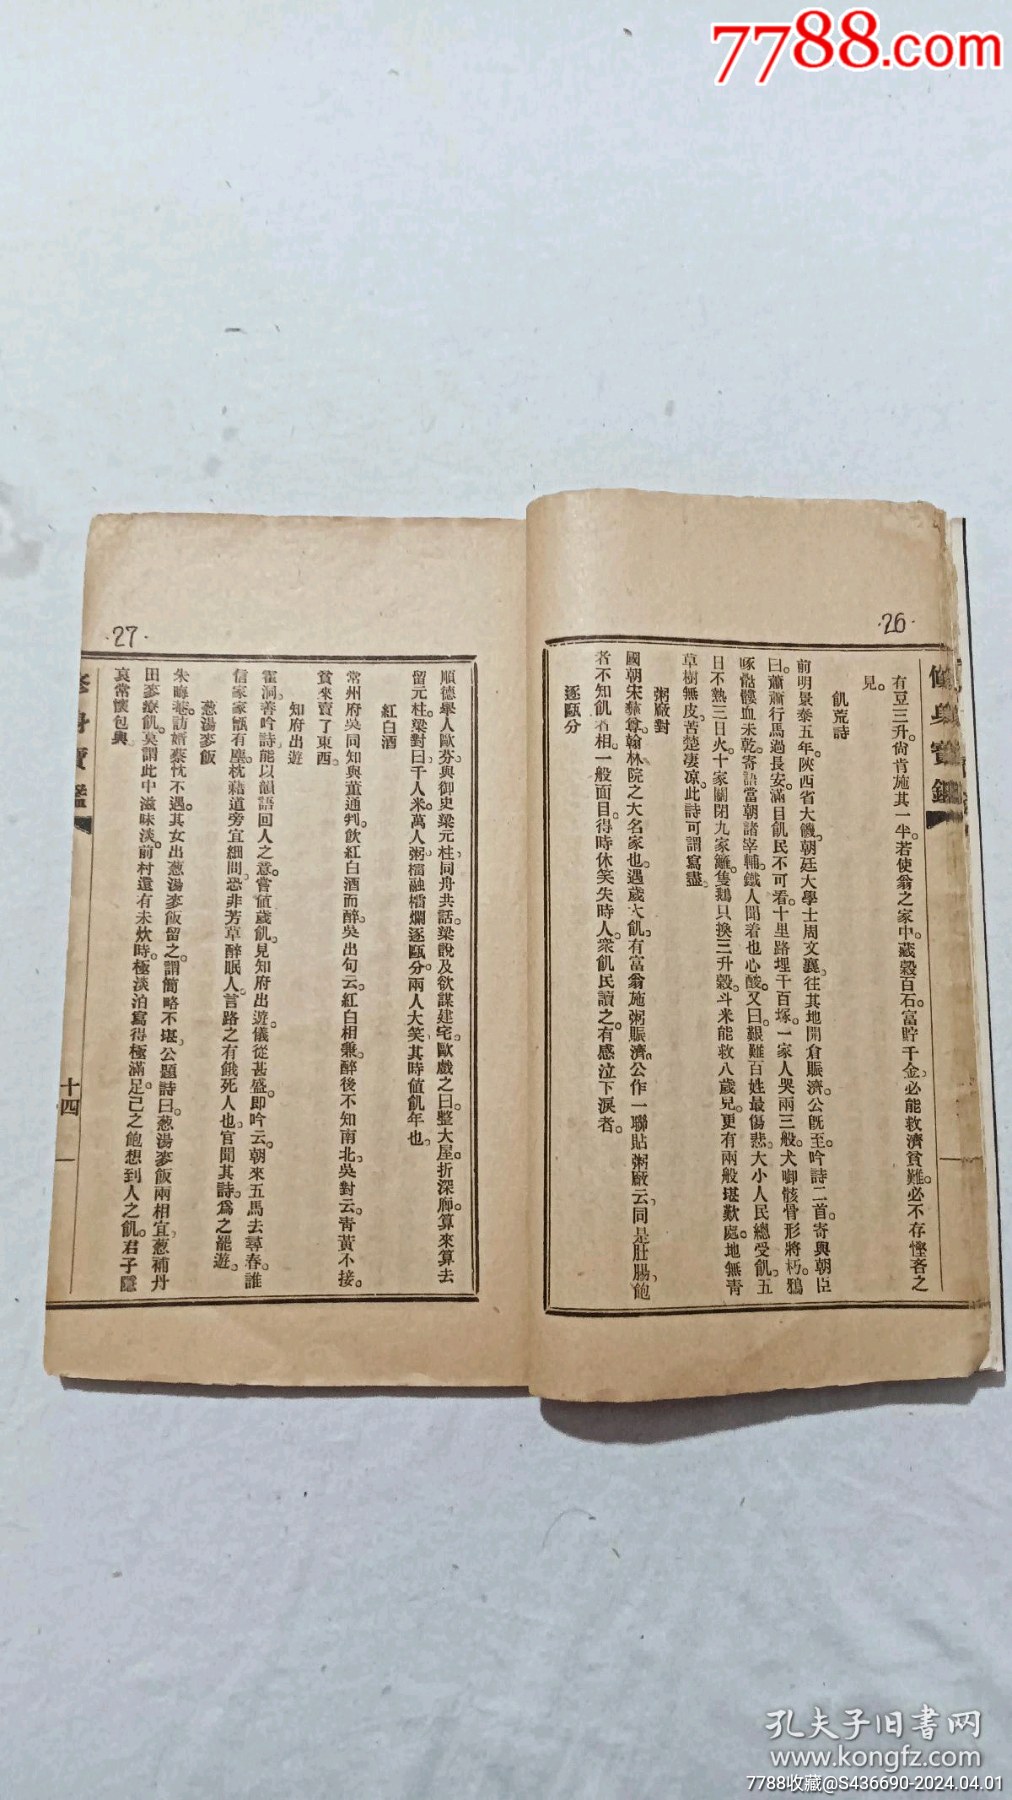 7788.com
·26·
修身寶鑑
有豆三升。尙肯施其一半。若使翁之家中。藏穀百石。富貯千金。必能救濟貧難。必不存慳吝之
見。
飢荒詩
前明景泰五年。陝西省大饑。朝廷大學士周文襄。往其地開倉賑濟。公旣至。吟詩二首。寄與朝臣
曰。蕭蕭行馬過長安。滿目飢民不可看。十里路埋千百塚。一家人哭兩三般。犬啣骸骨形將朽。鴉
啄骷髏血未乾。寄語當朝諸宰輔。鐵人聞着也心酸。又曰。艱難百姓最傷悲。大小人民總受飢。五
日不熱三日火。十家關閉九家籬。隻鵝只換三升穀。斗米能救八歲兒。更有兩般堪歎處。地無靑
草樹無皮。苦楚凄凉。此詩可謂寫盡。
粥廠對
國朝宋彝尊。翰林院之大名家也。遇歲大飢。有富翁施粥賑濟。公作一聯貼粥廠云。同是肚腸。飽
者不知飢者相。一般面目。得時休笑失時人。衆飢民讀之。有感泣下淚者。
逐甌分
·27·
修身寶鑑
順德舉人歐分。與御史梁元柱。同舟共話。梁說及欲謀建宅。歐戲之曰。整大屋。折深廊。算來算去
留元柱。梁對曰。千人米。萬人粥。擂融擂爛逐甌分。兩人大笑。其時値飢年也。
紅白酒
常州府吳同知與董通判。飲紅白酒而醉。吳出句云。紅白相兼。醉後不知南北。吳對云。靑黃不接。
貧來賣了東西。
知府出遊
霍洞善吟詩。能以韻語回人之意。嘗値歲飢。見知府出遊。儀從甚盛。卽吟云。朝來五馬去尋春。誰
信家家甑有塵。枕藉道旁宜細問。恐非芳草醉眠人。言路之有餓死人也。官聞其詩。爲之罷遊。
葱湯麥飯
朱晦菴訪婿蔡忱不遇。其女出葱湯麥飯留之。謂簡略不堪。公題詩曰。葱湯麥飯兩相宜。葱補丹
田麥療飢。莫謂此中滋味淡。前村還有未炊時。極淡泊寫得極滿足。己之飽想到人之飢。君子隱
哀常懷包輿。
十四
孔夫子旧書网
www.kongfz.com
7788收藏@S436690-2024.04.01